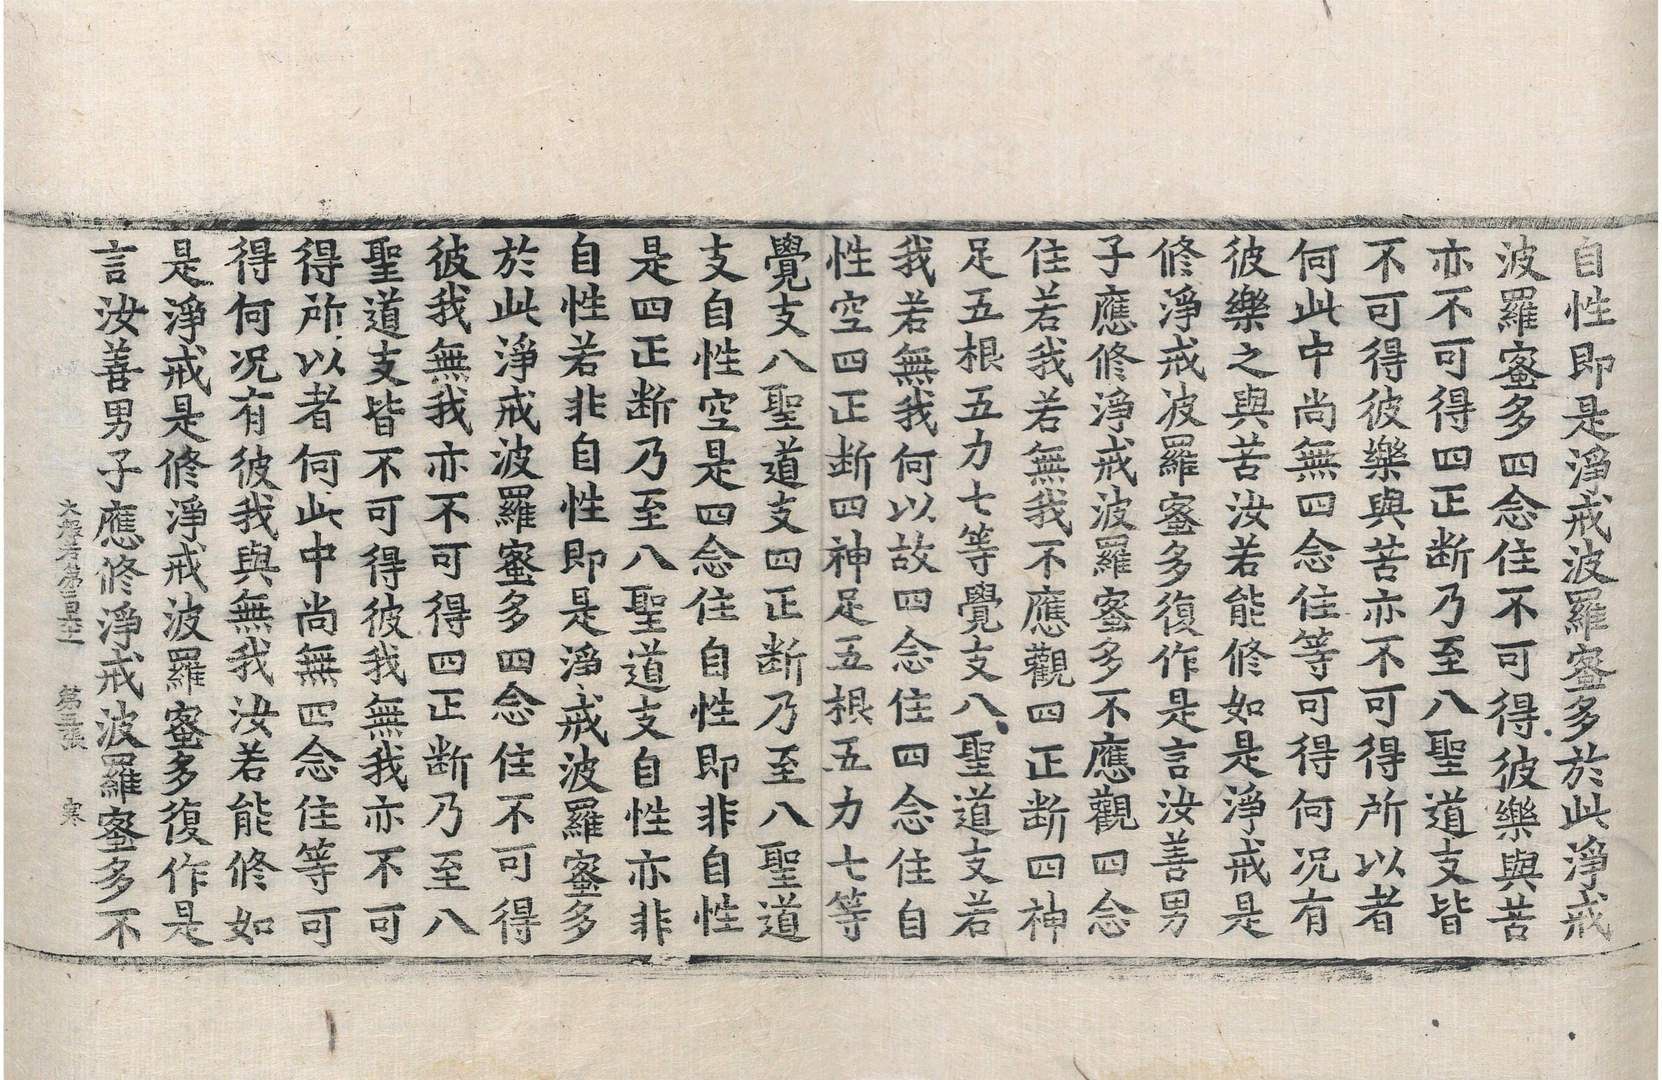 自性即是淨戒波羅蜜多於此淨戒
波羅蜜多四念住不可得彼樂與苦
亦不可得四正断乃至八聖道支皆
不可得彼樂與苦亦不可得所以者
何此中尚無四念住等可得何况有
彼樂之與苦汝若能修如是淨戒是
修淨戒波羅蜜多復作是言汝善男
子應修淨戒波羅蜜多不應觀四念
住若我若無我不應觀四正断四神
足五根五力七等覺支八聖道支若
我若無我何以故四念住四念住自
性空四正断四神足五根五力七等
覺支八聖道支四正断乃至八聖道
支自性空是四念住自性即非自性
是四正断乃至八聖道支自性亦非
自性若非自性即是淨戒波羅蜜多
於此淨戒波羅蜜多四念住不可得
彼我無我亦不可得四正断乃至八
聖道支皆不可得彼我無我亦不可
得所以者何此中尚無四念住等可
得何况有彼我與無我汝若能修如
是淨戒是修淨戒波羅蜜多復作是
言汝善男子應修淨戒波羅蜜多不
大般若第一百六十一 第五張 寒